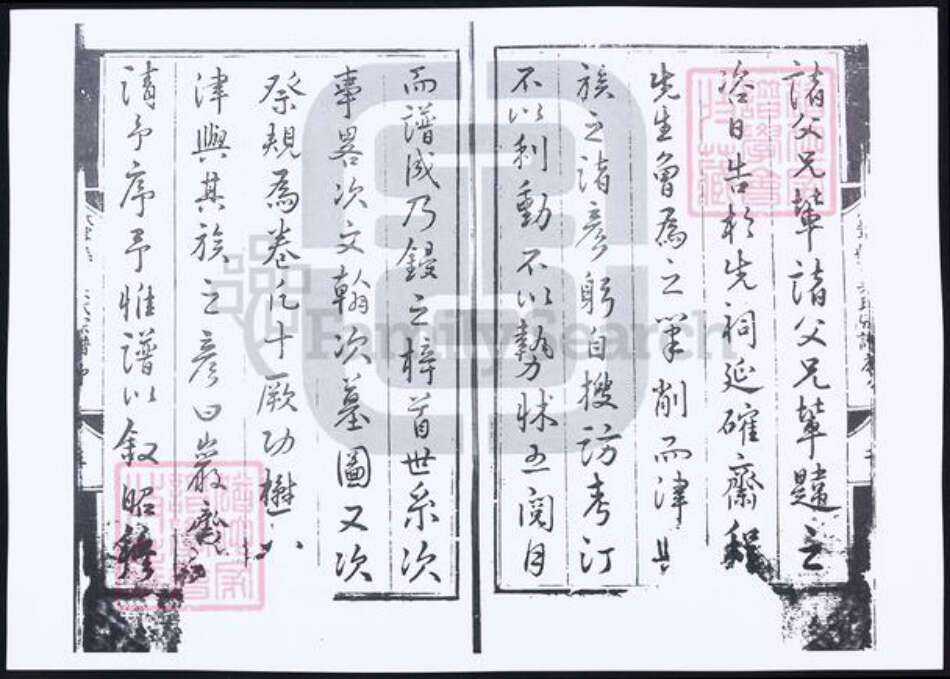 諸父兄輩諸父兄輩韙之
洽日告於先祠延確齋程
先生會為之筆削而津具
族之諸彥躬自搜訪考訂
不以利動不以勢怵五閱月
而譜成乃鋟之梓首世系次
事畧次文翰次墓圖又次
祭規為卷凡十厥功
津與其族之彥曰嚴齋
請予序予惟譜以敘昭穆
FamilySearch